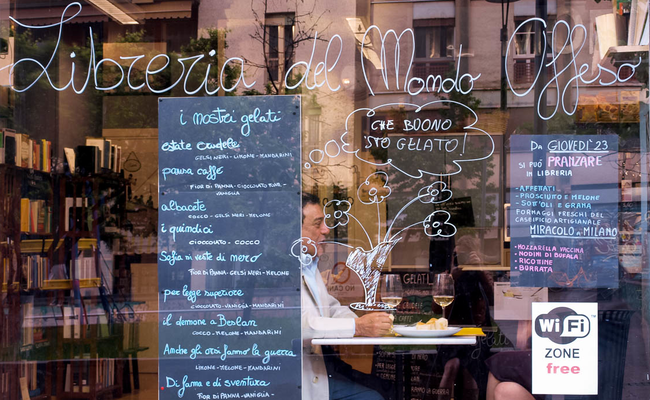 Libreria del Mondo Offeso
i nostri gelati
estate crudele
GELSI NERI - LIMONE - MANDARINI
panna caffè
FIOR DI PANNA - CIOCCOLATO FIOR -
VANIGLIA
albacete
COCCO - GELSI NERI - MELONE
i quindici
CIOCCOLATO - COCCO
Sofia si veste di nero
FIOR DI PANNA - GELSI NERI - MELONE
per legge superiore
CIOCCOLATO - VANIGLIA - MANDARINI
il demone a Beslan
COCCO - MELONE - MANDARINI
Anche gli orsi fanno la guerra
LIMONE - MELONE - MANDARINI
Di fama e di sventura
FIOR DI PANNA - VANIGLIA -
CHE BUONO
STO GELATO!
DA GIOVEDI' 23
SI PUÒ PRANZARE
IN LIBRERIA
- AFFETTATI
- PROSCIUTTO E MELONE
- SOTT'OLI E GRANA
FORMAGGI FRESCHI DEL
CASEIFICIO ARTIGIANALE
MIRACOLO A MILANO
- MOZZARELLA VACCINA
- NODINI DI BUFALA
- RICOTTINE
- BURRATA
GELATI
Wi Fi
ZONE
free